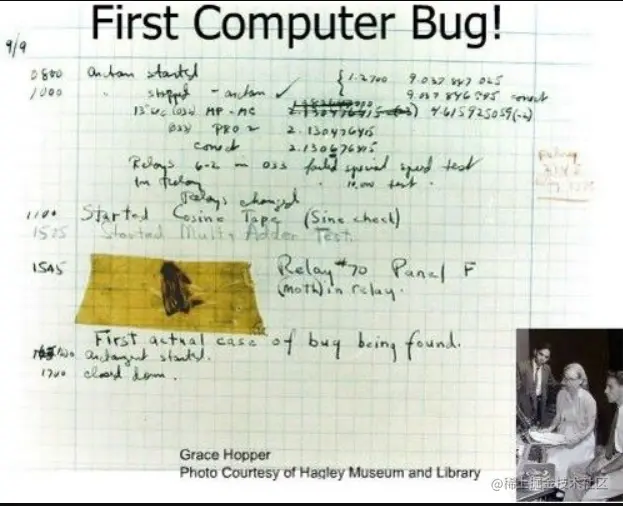 First Computer Bug!
9/9
0800 antan started
1000 " stopped - antan ✓ { 1.2700 9.037 847 025
9.037 846 995 correct
13"uc (032) MP - MC 2.130476415 (-3) 4.615925059(-2)
(033) PRO 2 2.130476415
correct 2.130676415
Relays 6-2 in 033 failed special speed test
in relay " 10,000 test .
Relays changed
1100 Started Cosine Tape (Sine check)
1525 Started Mult + Adder Test.
1545 Relay #70 Panel F
(moth) in relay.
First actual case of bug being found.
antangent started.
1700 closed down.
Grace Hopper
Photo Courtesy of Hagley Museum and Library
@稀土掘金技术社区